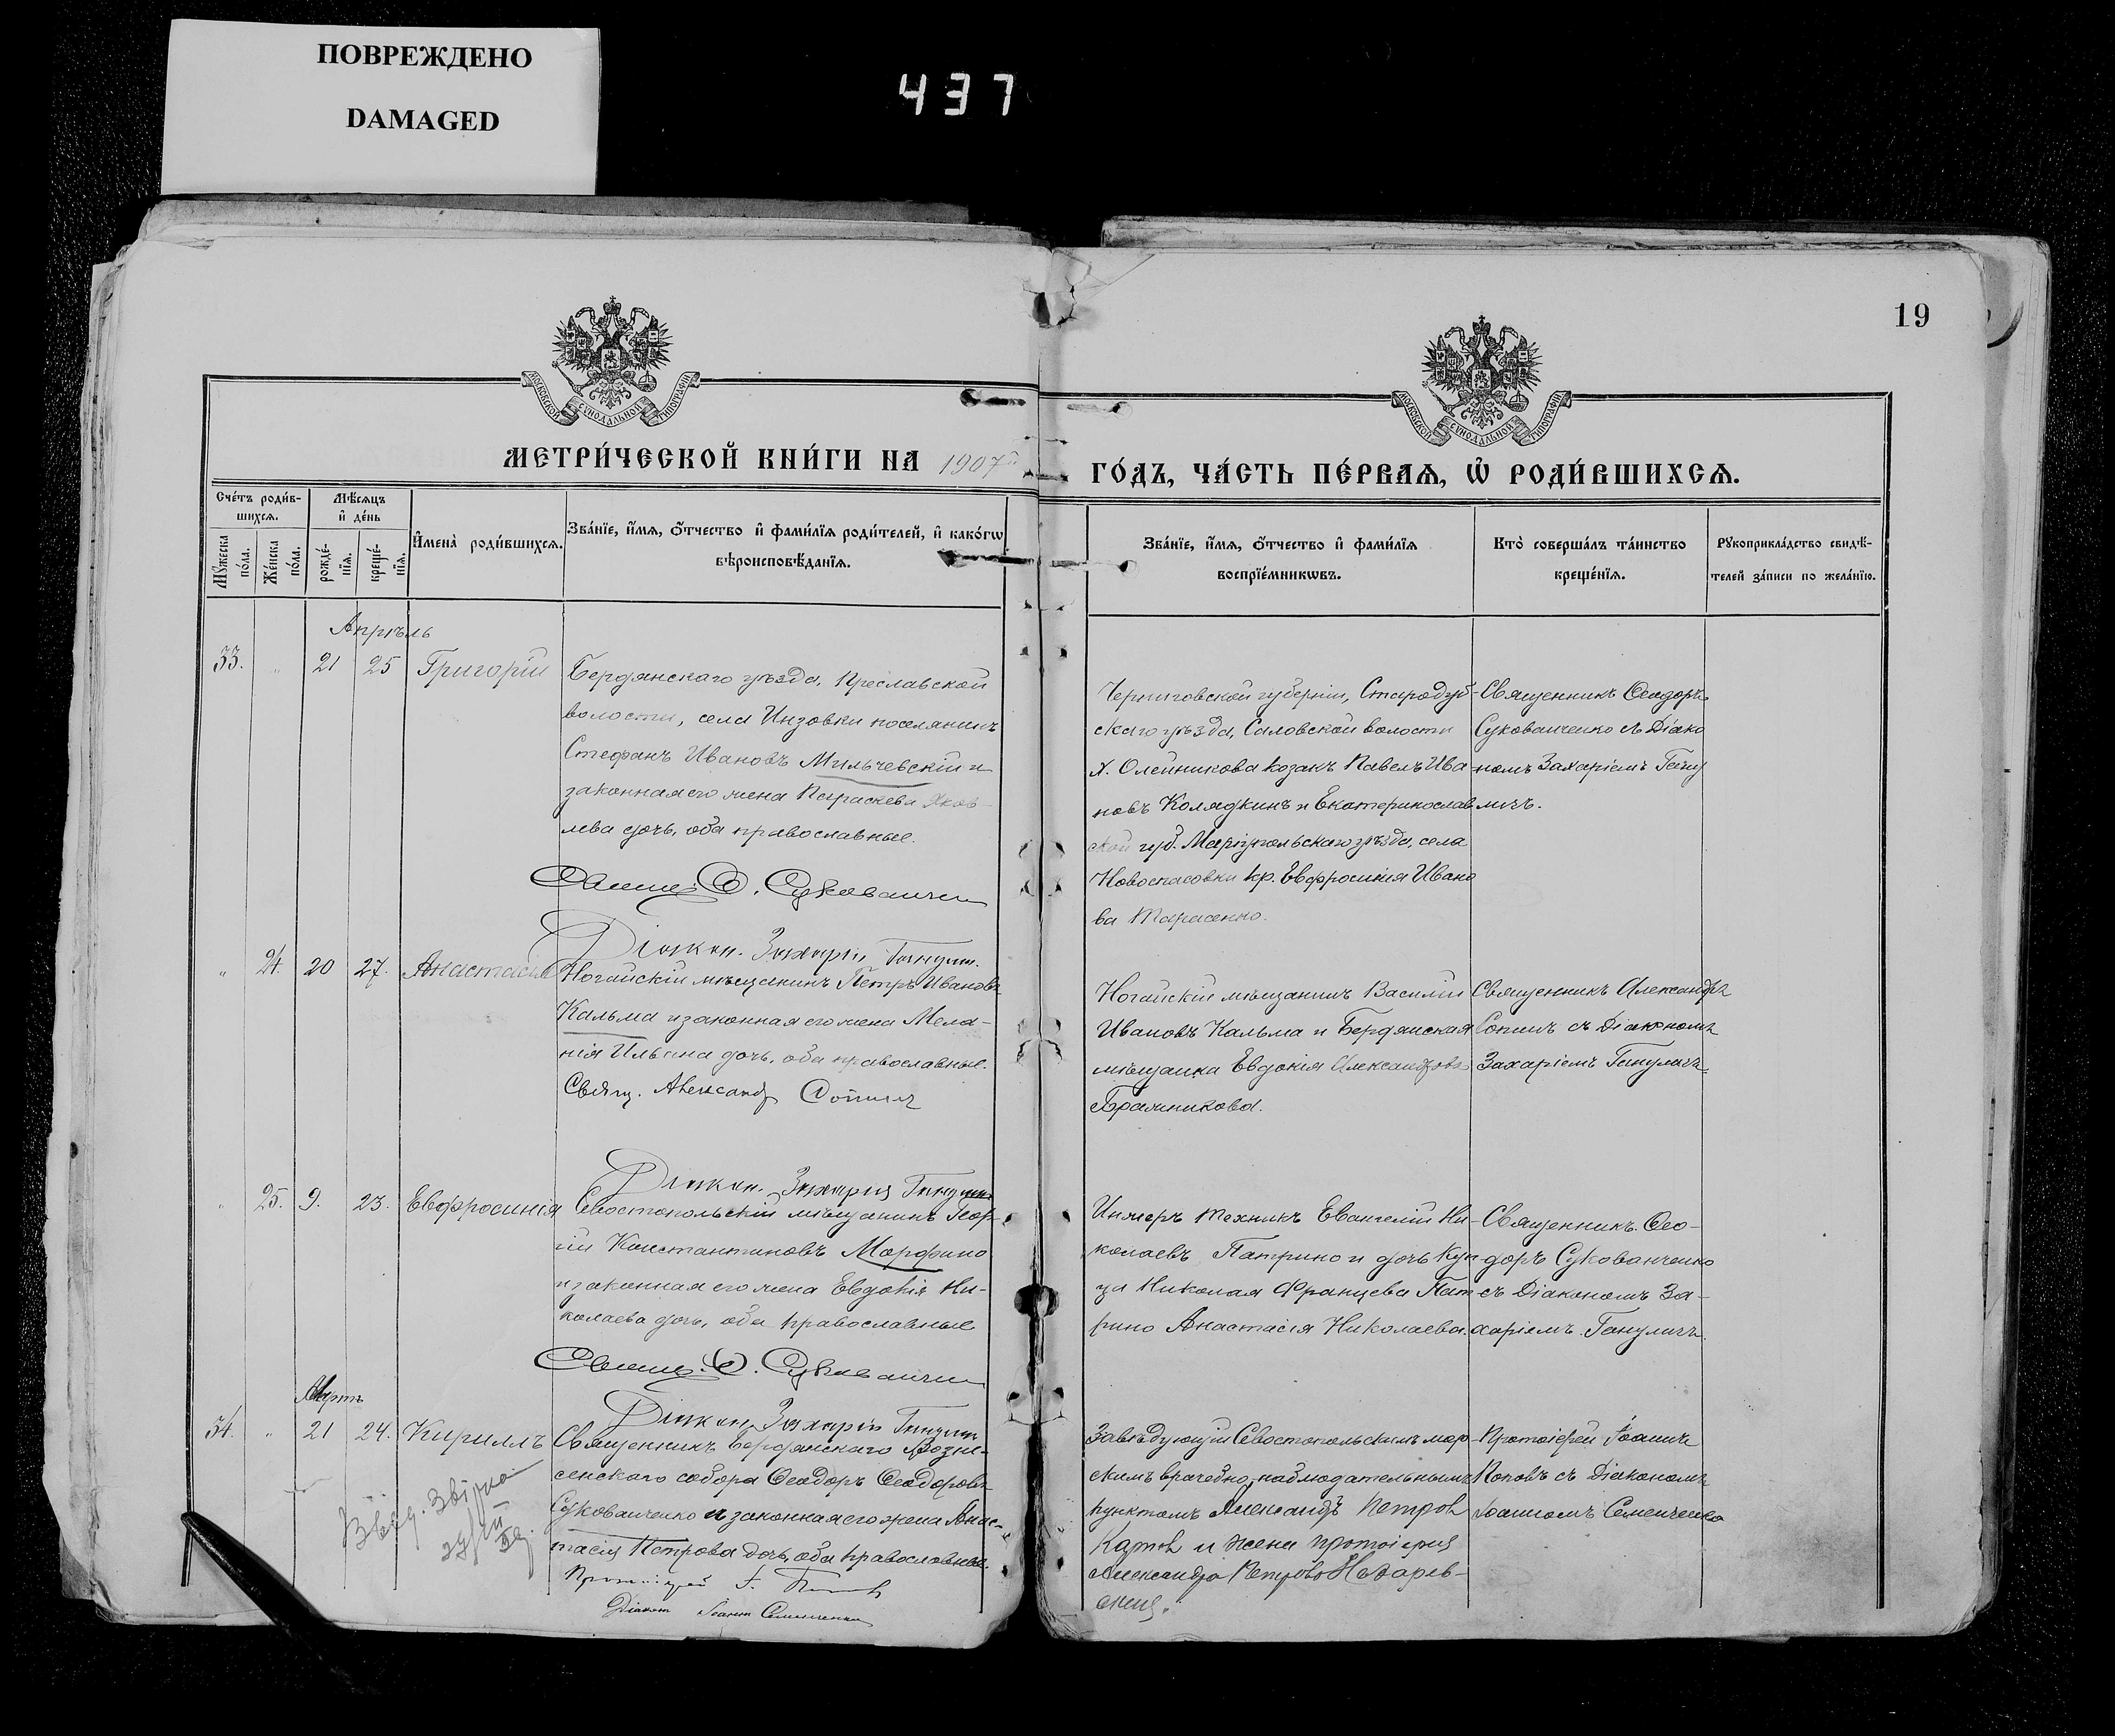 ПОВРЕЖДЕНО
DAMAGED
437
19
МОСКОВСКОЙ СѴНОДАЛЬНОЙ ТИПОГРАФІИ
МОСКОВСКОЙ СѴНОДАЛЬНОЙ ТИПОГРАФІИ
МЕТРИ́ЧЕСКОЙ КНИ́ГИ НА 1907й
ГО́ДЪ, ЧА́СТЬ ПЕ́РВАѦ, Ѽ РОДИ́ВШИХСѦ.
Сче́тъ роди́в-
шихсѧ.
Мꙋ́жеска
по́ла.
Же́нска
по́ла.
Мѣ́сѧцъ
и҆ де́нь
рожде́-
нїѧ.
креще́-
нїѧ.
И҆мена̀ роди́вшихсѧ.
Зва́нїе, и҆́мѧ, ѻ҆́тчество и҆ фами́лїѧ роди́телей, и҆ како́гѡ
вѣроисповѣ́данїѧ.
Зва́нїе, и҆́мѧ, ѻ҆́тчество и҆ фами́лїѧ
воспрїе́мникѡвъ.
Кто̀ соверша́лъ та́инство
креще́нїѧ.
Рꙋкоприкла́дство свидѣ́-
телей за́писи по жела́нїю.
Апрѣль
33. " 21 25 Григорій
Бердянскаго уѣзда, Преславской
волости, села Инзовки поселянинъ
Стефанъ Ивановъ Мильчевскій и
законная его жена Параскева Яков-
лева дочь, оба православные.
Свящ. Ѳ. Сукованчен
Діакон. Захарій Ганулич.
Черниговской губерніи, Стародуб-
скаго уѣзда, Саловской волости
х. Олейникова козакъ Павелъ Ива-
новъ Колядкинъ и Екатеринослав
ской губ. Маріупольскаго уѣзда, села
Новоспасовки кр. Евфросинія Ивано
ва Тарасенко.
Священникъ Ѳеодоръ
Сукованченко съ Діако
номъ Захаріемъ Гану
личъ.
" 24. 20 27. Анастасія
Ногайскій мѣщанинъ Петръ Ивановъ
Кальма и законная его жена Мела-
нія Ильина дочь, оба православные.
Свящ. Александр Сопин
Діакон. Захарія Ганулич
Ногайскій мѣщанинъ Василій
Ивановъ Кальма и Бердянская
мѣщанка Евдокія Александрова
Бражникова.
Священникъ Александръ
Сопинъ съ Діакономъ
Захаріемъ Гануличъ.
" 25. 9. 23. Евфросинія
Севостопольскій мѣщанинъ Геор-
гій Константиновъ Морфино
и законная его жена Евдокія Ни-
колаева дочь, оба православные
Свящ. Ѳ. Сукованчен
Діакон Захарій Ганулич
Инжеръ Техникъ Евангелій Ни-
колаевъ Патрино и дочь Куп-
ца Николая Францева Пат-
рино Анастасія Николаева.
Священникъ Ѳео-
доръ Сукованченко
съ Діакономъ За-
харіемъ Гануличъ.
Мартъ
34. " 21 24. Кириллъ
Священникъ Бердянскаго Возне-
сенскаго собора Ѳеодоръ Ѳеодоровъ
Сукованченко и законная его жена Анас-
тасія Петрова дочь, оба православные.
Протоіерей І. Попов
Діакон Іоанн Семенченко
Завѣдующій Севостопольскимъ мор-
скимъ врачебно-наблюдательнымъ
пунктомъ Александръ Петров
Карпов и жена протоіерея
Александра Петрова Назарев-
скія.
Протоіерей Іоаннъ
Поповъ съ Діакономъ
Іоанномъ Семенченко